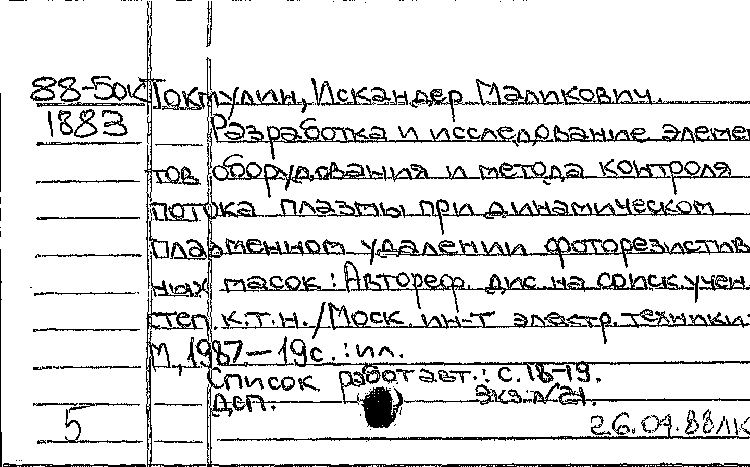 88-50к Токмулин, Искандер Маликович.
1883 Разработка и исследование элемен
тов оборудования и метода контроля
потока плазмы при динамическом
плазменном удалении фоторезистив
ных масок : Автореф. дис. на соиск. учен.
степ. к.т.н. / Моск. ин-т электр. техники.-
М., 1987.-19с.: ил.
Список работ авт.: с.18-19.
Дсп. Экз. 
5 26.04.88